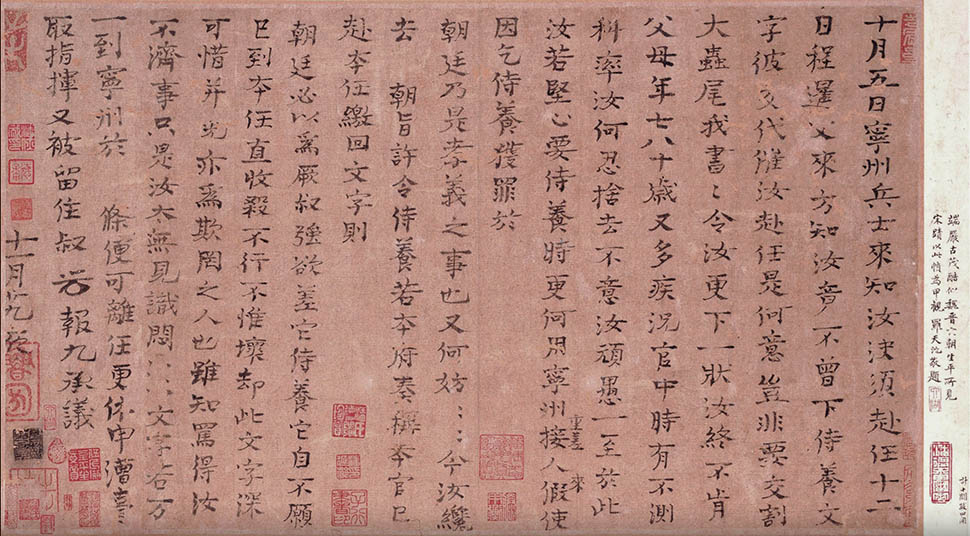 端嚴古茂酷似魏晉六朝生平所見
宋蹟以此幀為甲觀 羅天池敬題
十月五日寧州兵士來知汝決須赴任十二
日程暹父來方知汝竟不曾下侍養文
字彼交代催汝赴任是何意豈非要交割
大蟲尾我書〻令汝更下一狀汝終不肯
父母年七八十歲又多疾況官中時有不測
科率汝何忍捨去不意汝頑愚一至於此
汝若堅心要侍養時更何用寧州接人重差來假使
因乞侍養獲罪於
朝廷乃是孝義之事也又何妨〻〻今汝纔
去 朝旨許令侍養若本府奏稱本官已
赴本任繳回文字則
朝廷必以為厥叔強欲差它侍養它自不願
已到本任直收殺不行不惟壞却此文字深
可惜并光亦為欺罔之人也雖知罵得汝
不濟事只是汝太無見識悶〻〻文字若万
一到寧州於 條便可離任更依申漕臺
取指揮又被留住叔光報九承議
十一月九